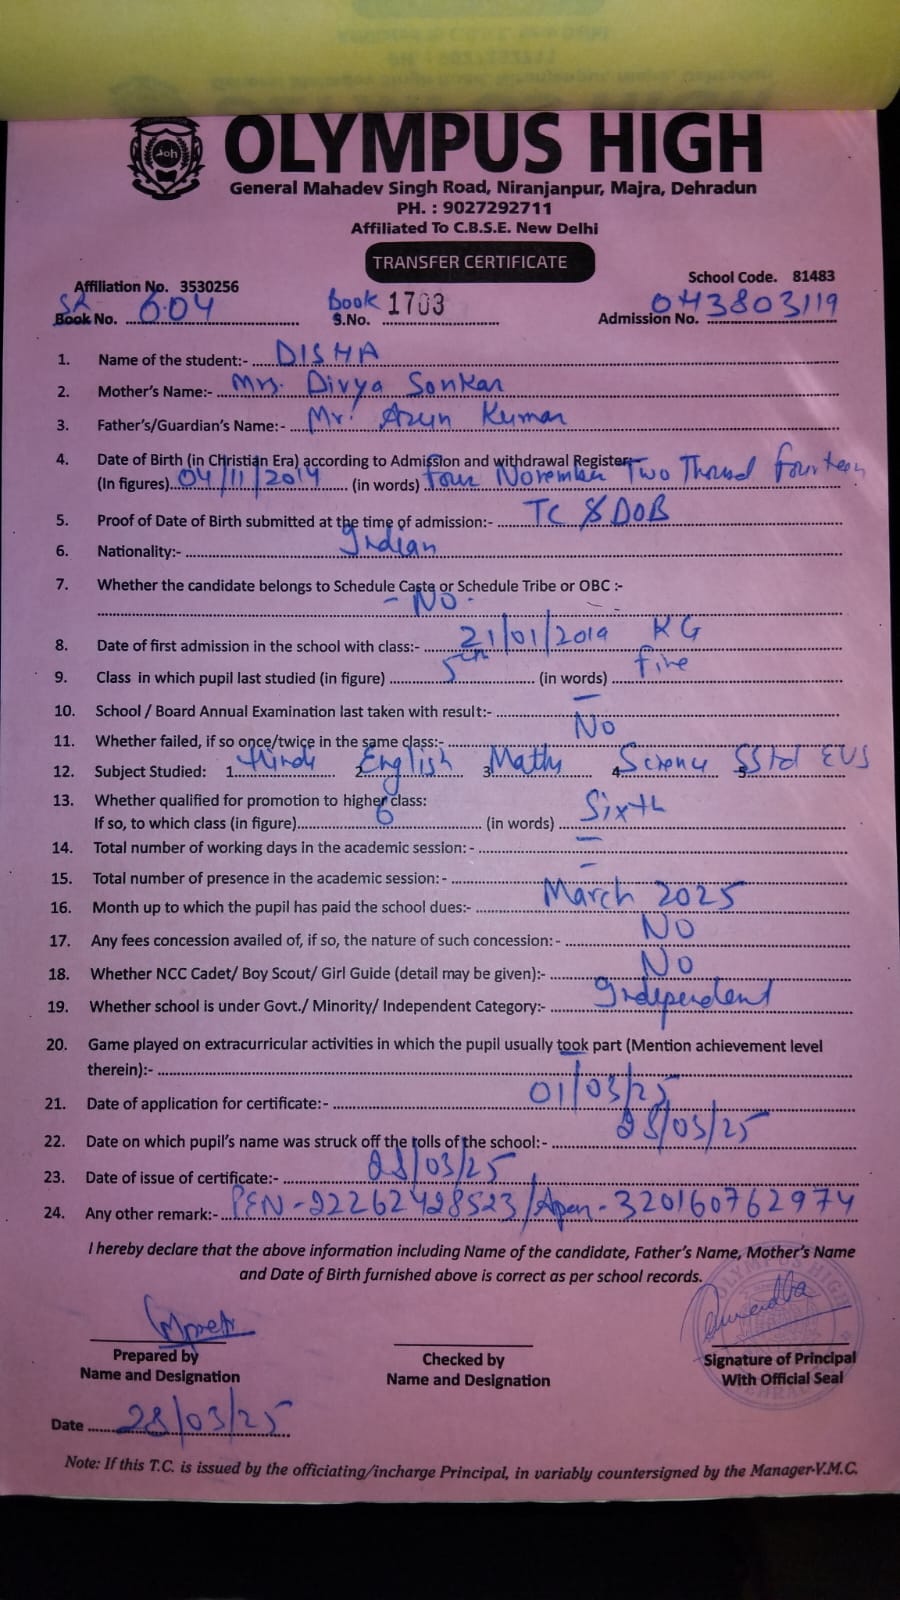 OLYMPUS HIGH
General Mahadev Singh Road, Niranjanpur, Majra, Dehradun
PH. : 9027292711
Affiliated To C.B.S.E. New Delhi
TRANSFER CERTIFICATE
Affiliation No. 3530256 School Code. 81483
SR Book No. 604 Book S.No. 1703 Admission No. 043803119
1. Name of the student:- DISHA
2. Mother's Name:- Mrs. Divya Sonkar
3. Father's/Guardian's Name:- Mr. Arun Kumar
4. Date of Birth (in Christian Era) according to Admission and withdrawal Register:
(In figures) 04/11/2014 (in words) Four November Two Thousd Fourteen
5. Proof of Date of Birth submitted at the time of admission:- TC & DOB
6. Nationality:- Indian
7. Whether the candidate belongs to Schedule Caste or Schedule Tribe or OBC :-
- No -
8. Date of first admission in the school with class:- 21/01/2019 KG
9. Class in which pupil last studied (in figure) 5th (in words) five
10. School / Board Annual Examination last taken with result:- —
11. Whether failed, if so once/twice in the same class:- No
12. Subject Studied: 1. Hindi 2. English 3. Maths 4. Science 5. SStd EVS
13. Whether qualified for promotion to higher class:
If so, to which class (in figure) 6 (in words) Sixth
14. Total number of working days in the academic session: - —
15. Total number of presence in the academic session: - —
16. Month up to which the pupil has paid the school dues:- March 2025
17. Any fees concession availed of, if so, the nature of such concession: - No
18. Whether NCC Cadet/ Boy Scout/ Girl Guide (detail may be given):- No
19. Whether school is under Govt./ Minority/ Independent Category:- Independent
20. Game played on extracurricular activities in which the pupil usually took part (Mention achievement level
therein):- —
21. Date of application for certificate:- 01/03/25
22. Date on which pupil's name was struck off the rolls of the school:- 28/03/25
23. Date of issue of certificate:- 28/03/25
24. Any other remark:- PEN-22262428523/Apar-320160762974
I hereby declare that the above information including Name of the candidate, Father's Name, Mother's Name
and Date of Birth furnished above is correct as per school records.
OLYMPUS HIGH
Prepared by Checked by Signature of Principal
Name and Designation Name and Designation With Official Seal
Date 28/03/25
Note: If this T.C. is issued by the officiating/incharge Principal, in variably countersigned by the Manager-V.M.C.